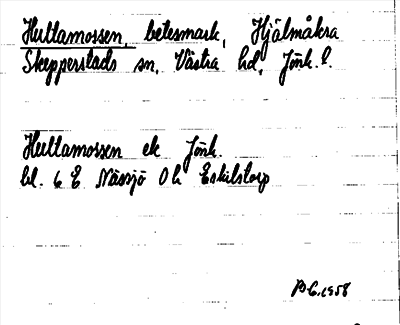 Hultamossen, betesmark, Hjälmåkra
Skepperstads sn, Västra hd, Jönk. l.
Hultamossen ek Jönk.
bl. 6 E Nässjö 0 h Eskilstorp
1958